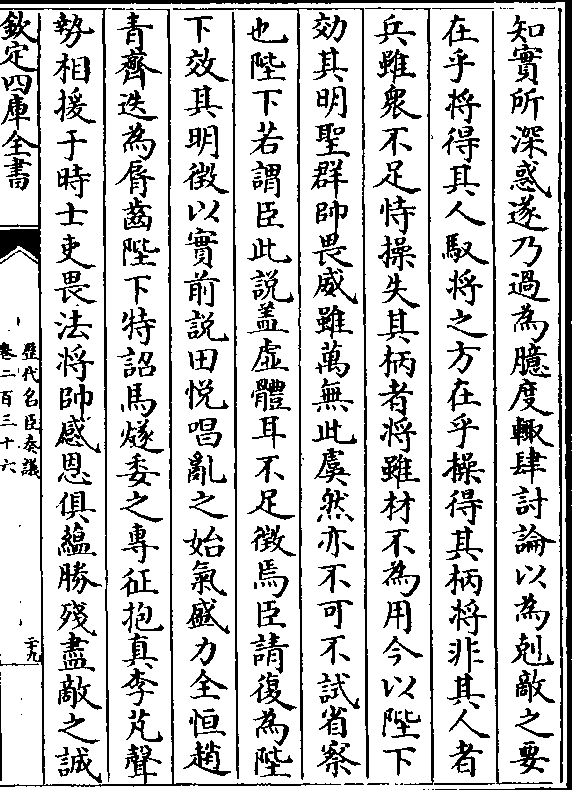 知實所深惑遂乃過為臆度輙肆討論以為剋敵之要
在乎将得其人馭将之方在乎操得其柄将非其人者
兵雖衆不足恃操失其柄者将雖材不為用今以陛下
効其明聖群帥畏威雖萬無此虞然亦不可不試省察
也陛下若謂臣此説盖虛體耳不足徴焉臣請復為陛
下效其明徴以實前説田悦唱亂之始氣盛力全恒趙
青齊迭為脣齒陛下特詔馬燧委之專征抱真李芃聲
勢相援于時士吏畏法将帥感恩俱蘊勝殘盡敵之誠
欽定四庫全書
歷代名臣奏議
卷二百三十六
二十九